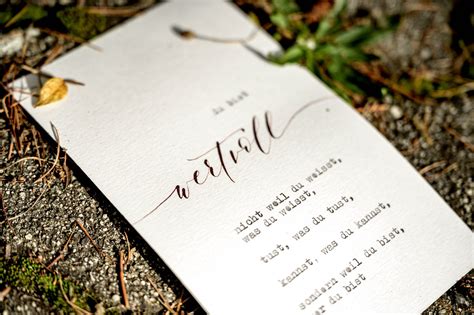 du bist
wertvoll
nicht weil du weisst,
was du weisst,
tust, was du tust,
kannst, was du kannst,
sondern weil du bist,
er du bist.